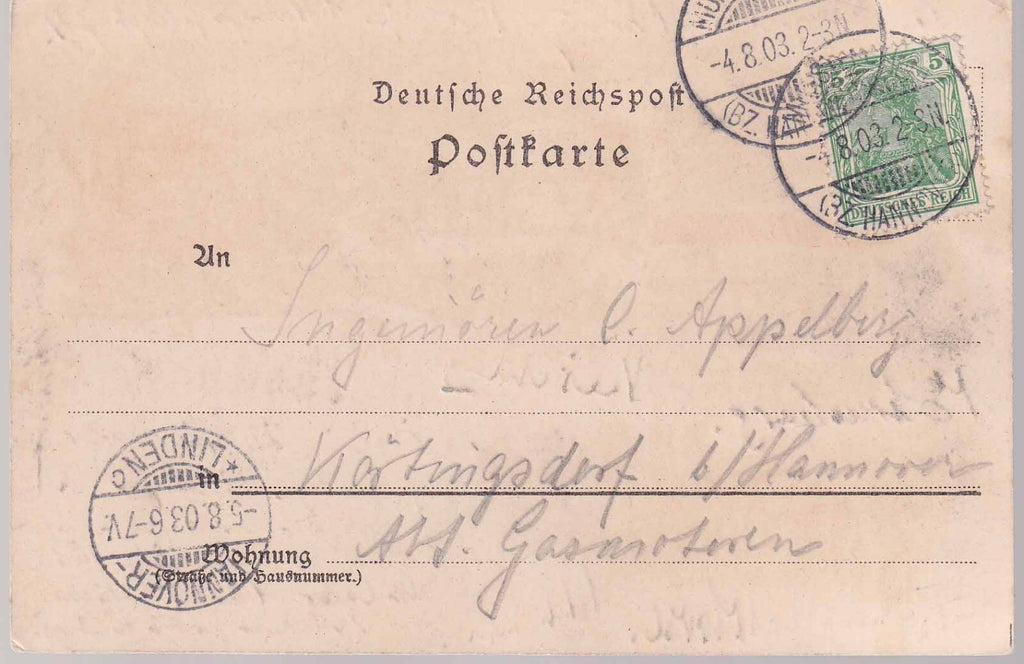 -4.8.03.2-3N
(BZ. HAM
5
5
-4.8.03.2-3N.
(BZ. HAM
DEUTSCHES REICH
Deutsche Reichspost
Postkarte
An
Ingeniören C. Appelberg
in Körtingsdorf b/Hannover
Wohnung Abt. Gasmotoren
(Straße und Hausnummer.)
HANNOVER-
-5.8.03.6-7V.
*LINDEN c